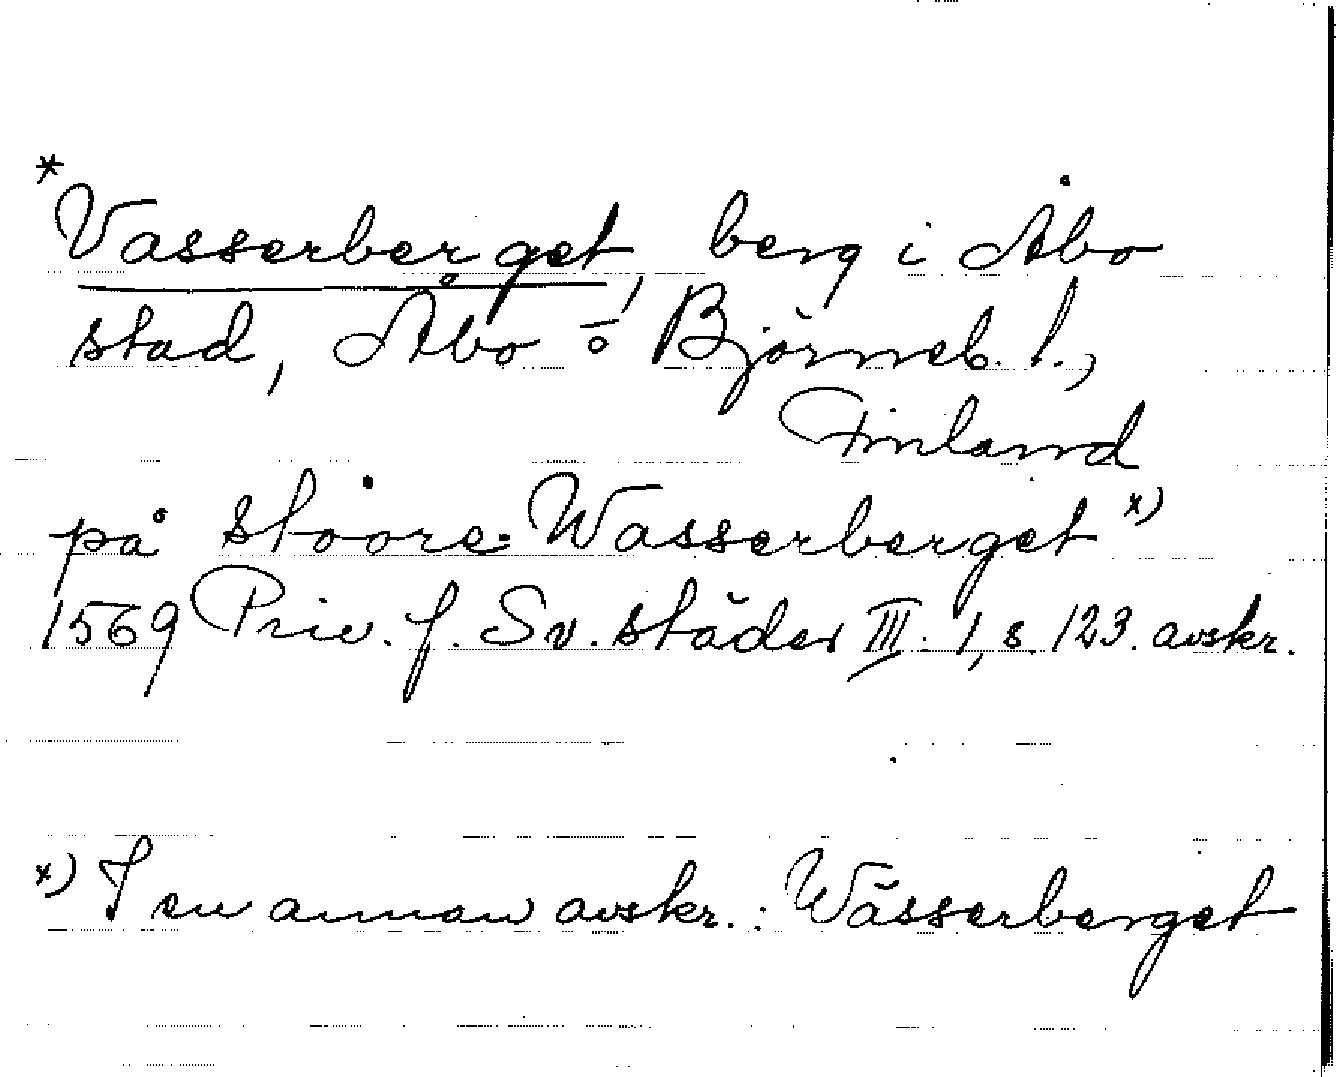 *Vasserberget, berg i Åbo
stad, Åbo o. Björneb. l.,
Finland
på stoore Wasserberget x)
1569 Priv. f. Sv. städer III. 1, s. 123. avskr.
x) I en annan avskr.: Wässerberget